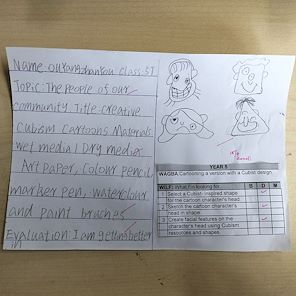 Name: OuYangZhanYou Class: 5T
Topic: The people of our
community Title: creative
Cubism Cartoons Materials
wet media / Dry media
Art paper, Colour pencil,
marker pen, watercolour
and paint bruches
Evaluation: I am getting better
in
YEAR 5
WAGBA Cartooning a version with a Cubist design
WILF: What I'm looking for B D M
1 Select a Cubist-inspired shape
for the cartoon character's head.
2 Sketch the cartoon character's
head in shape.
3 Create facial features on the
character's head using Cubism
resources and shapes.